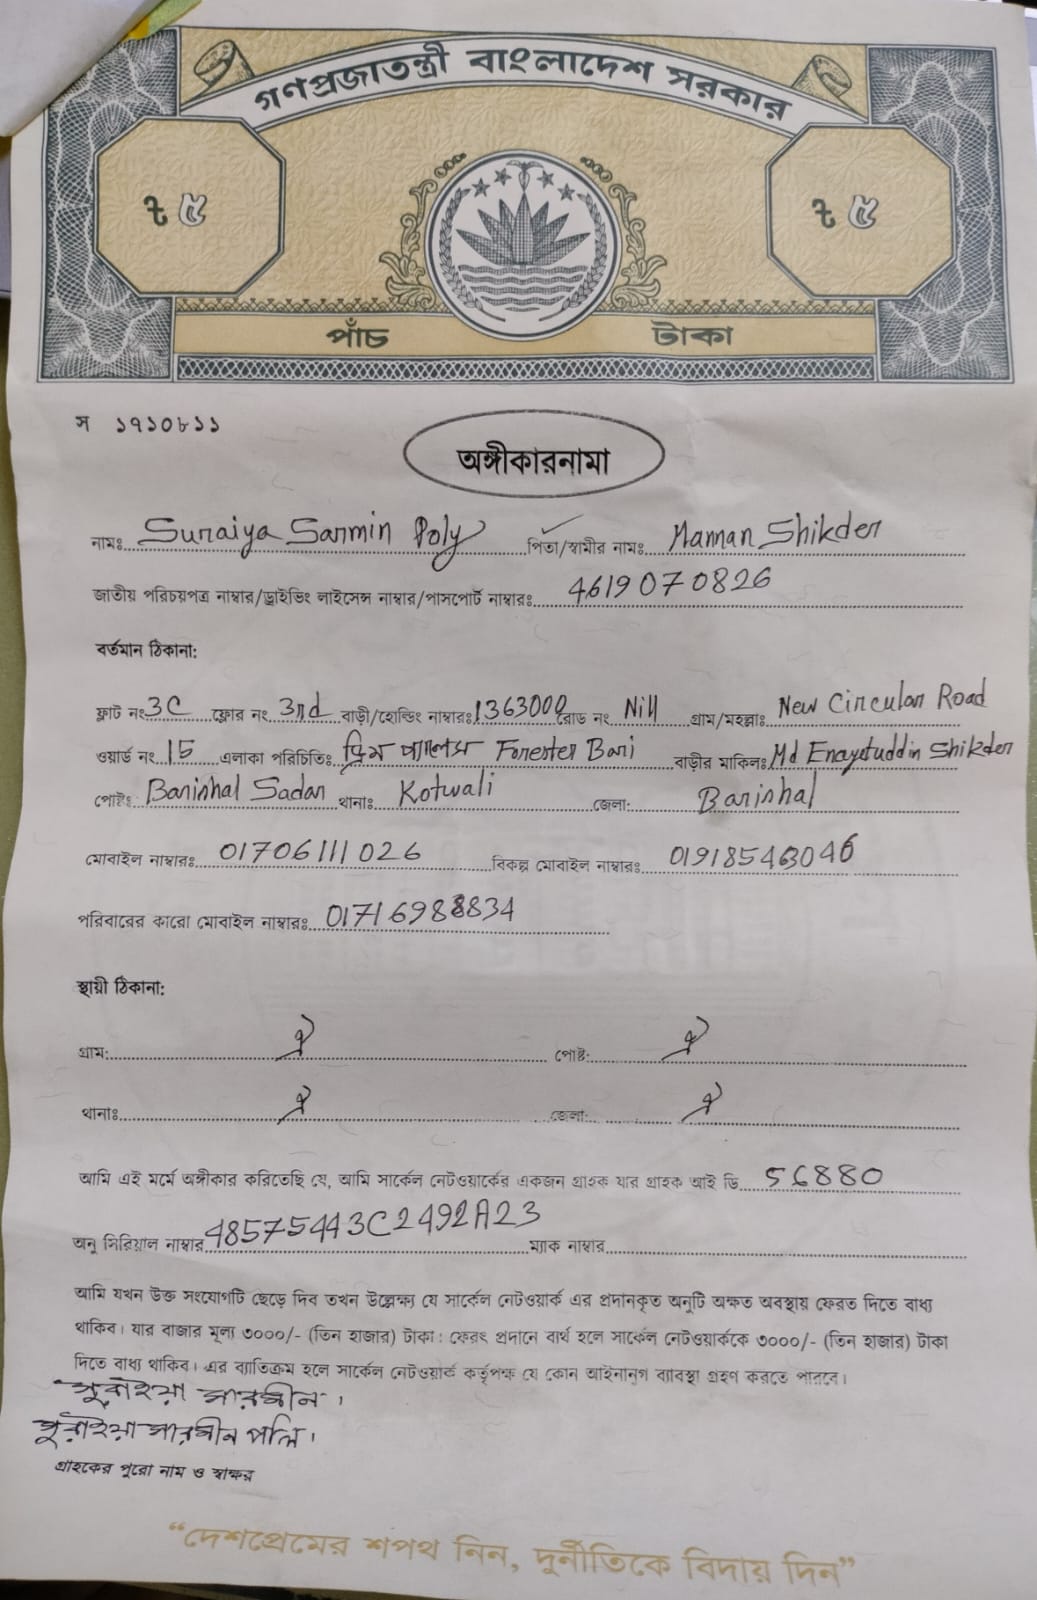 গণপ্রজাতন্ত্রী বাংলাদেশ সরকার
৳ ৫ ৳ ৫
পাঁচ টাকা
স ১৭১০৮১১
অঙ্গীকারনামা
নামঃ Suraiya Sarmin Poly পিতা/স্বামীর নামঃ Mannan Shikder
জাতীয় পরিচয়পত্র নাম্বার/ড্রাইভিং লাইসেন্স নাম্বার/পাসপোর্ট নাম্বারঃ 4619070826
বর্তমান ঠিকানা:
ফ্লাট নং 3C ফ্লোর নং 3rd বাড়ী/হোল্ডিং নাম্বারঃ 1363000 রোড নং Nill গ্রাম/মহল্লাঃ New Circular Road
ওয়ার্ড নং 15 এলাকা পরিচিতিঃ ড্রিম প্যালেস Forester Bari বাড়ীর মালিকঃ Md Enayetuddin Shikder
পোষ্টঃ Barishal Sadar থানাঃ Kotwali জেলা: Barishal
মোবাইল নাম্বারঃ 01706111026 বিকল্প মোবাইল নাম্বারঃ 01918546046
পরিবারের কারো মোবাইল নাম্বারঃ 01716988834
স্থায়ী ঠিকানা:
গ্রাম: ঐ পোষ্ট: ঐ
থানাঃ ঐ জেলা: ঐ
আমি এই মর্মে অঙ্গীকার করিতেছি যে, আমি সার্কেল নেটওয়ার্কের একজন গ্রাহক যার গ্রাহক আই ডি 56880
অনু সিরিয়াল নাম্বার 48575443C2492A23 ম্যাক নাম্বার
আমি যখন উক্ত সংযোগটি ছেড়ে দিব তখন উল্লেক্ষ্য যে সার্কেল নেটওয়ার্ক এর প্রদানকৃত অনুটি অক্ষত অবস্থায় ফেরত দিতে বাধ্য
থাকিব। যার বাজার মূল্য ৩০০০/- (তিন হাজার) টাকা: ফেরৎ প্রদানে ব্যর্থ হলে সার্কেল নেটওয়ার্ককে ৩০০০/- (তিন হাজার) টাকা
দিতে বাধ্য থাকিব। এর ব্যাতিক্রম হলে সার্কেল নেটওয়ার্ক কর্তৃপক্ষ যে কোন আইনানুগ ব্যাবস্থা গ্রহণ করতে পারবে।
সুরাইয়া সারমীন।
সুরাইয়া সারমীন পলি।
গ্রাহকের পুরো নাম ও স্বাক্ষর
“দেশপ্রেমের শপথ নিন, দুর্নীতিকে বিদায় দিন”